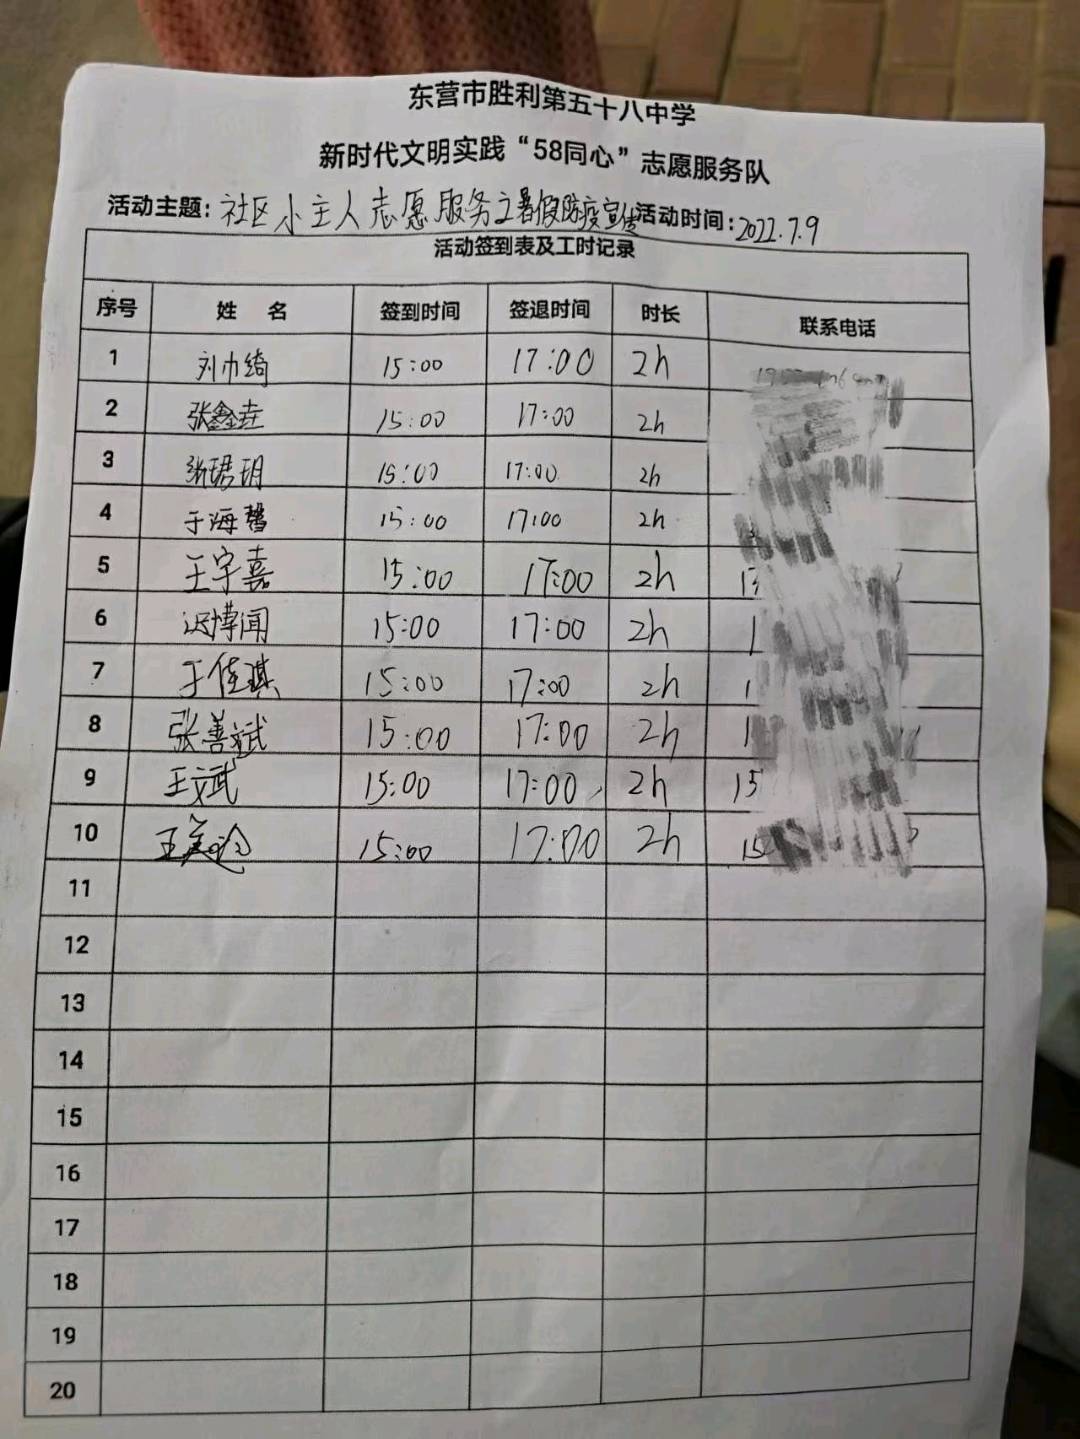 东营市胜利第五十八中学
新时代文明实践“58同心”志愿服务队
活动主题:社区小主人志愿服务之暑假防疫宣传 活动时间:2022.7.9
活动签到表及工时记录
序号 姓 名 签到时间 签退时间 时长 联系电话
1 刘巾绮 15:00 17:00 2h
2 张鑫垚 15:00 17:00 2h
3 张珺玥 15:00 17:00 2h
4 于海馨 15:00 17:00 2h
5 王宇嘉 15:00 17:00 2h 13
6 迟博闻 15:00 17:00 2h 1
7 于佳琪 15:00 17:00 2h 1
8 张善斌 15:00 17:00 2h 1
9 王斌 15:00 17:00 2h 15
10 王美玲 15:00 17:00 2h 15
11
12
13
14
15
16
17
18
19
20